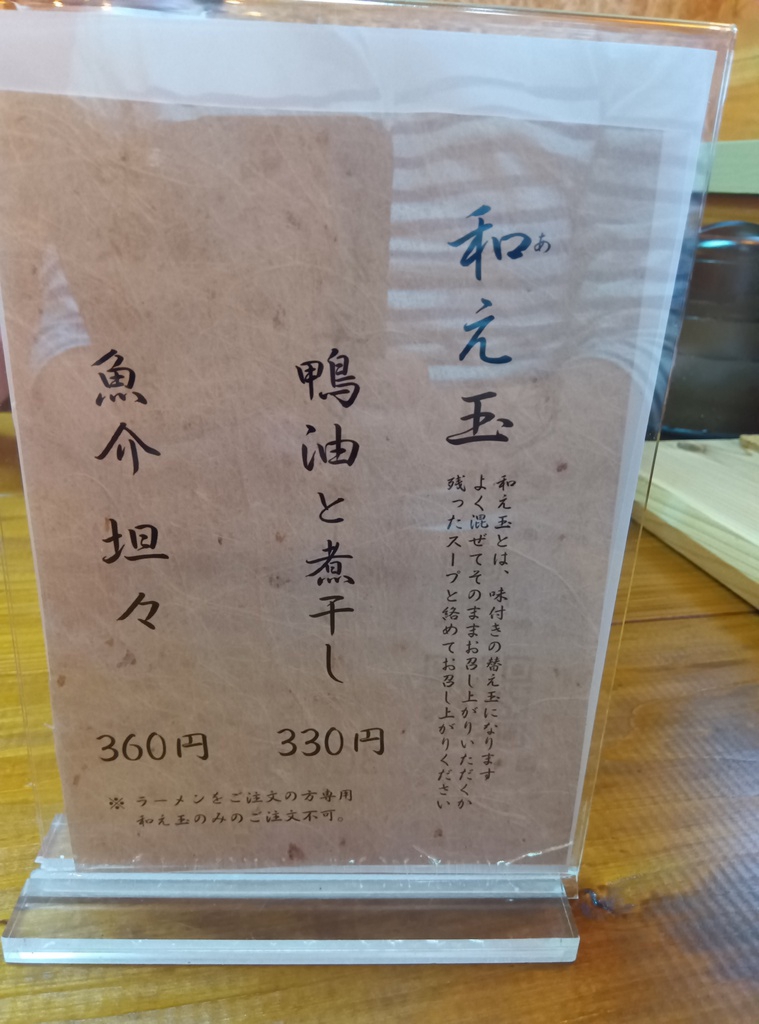 和え玉
あ
和え玉とは、味付きの替え玉になります
よく混ぜてそのままお召し上がりいただくか
残ったスープと絡めてお召し上がりください
鴨油と煮干し
330円
魚介坦々
360円
※ ラーメンをご注文の方専用
和え玉のみのご注文不可。